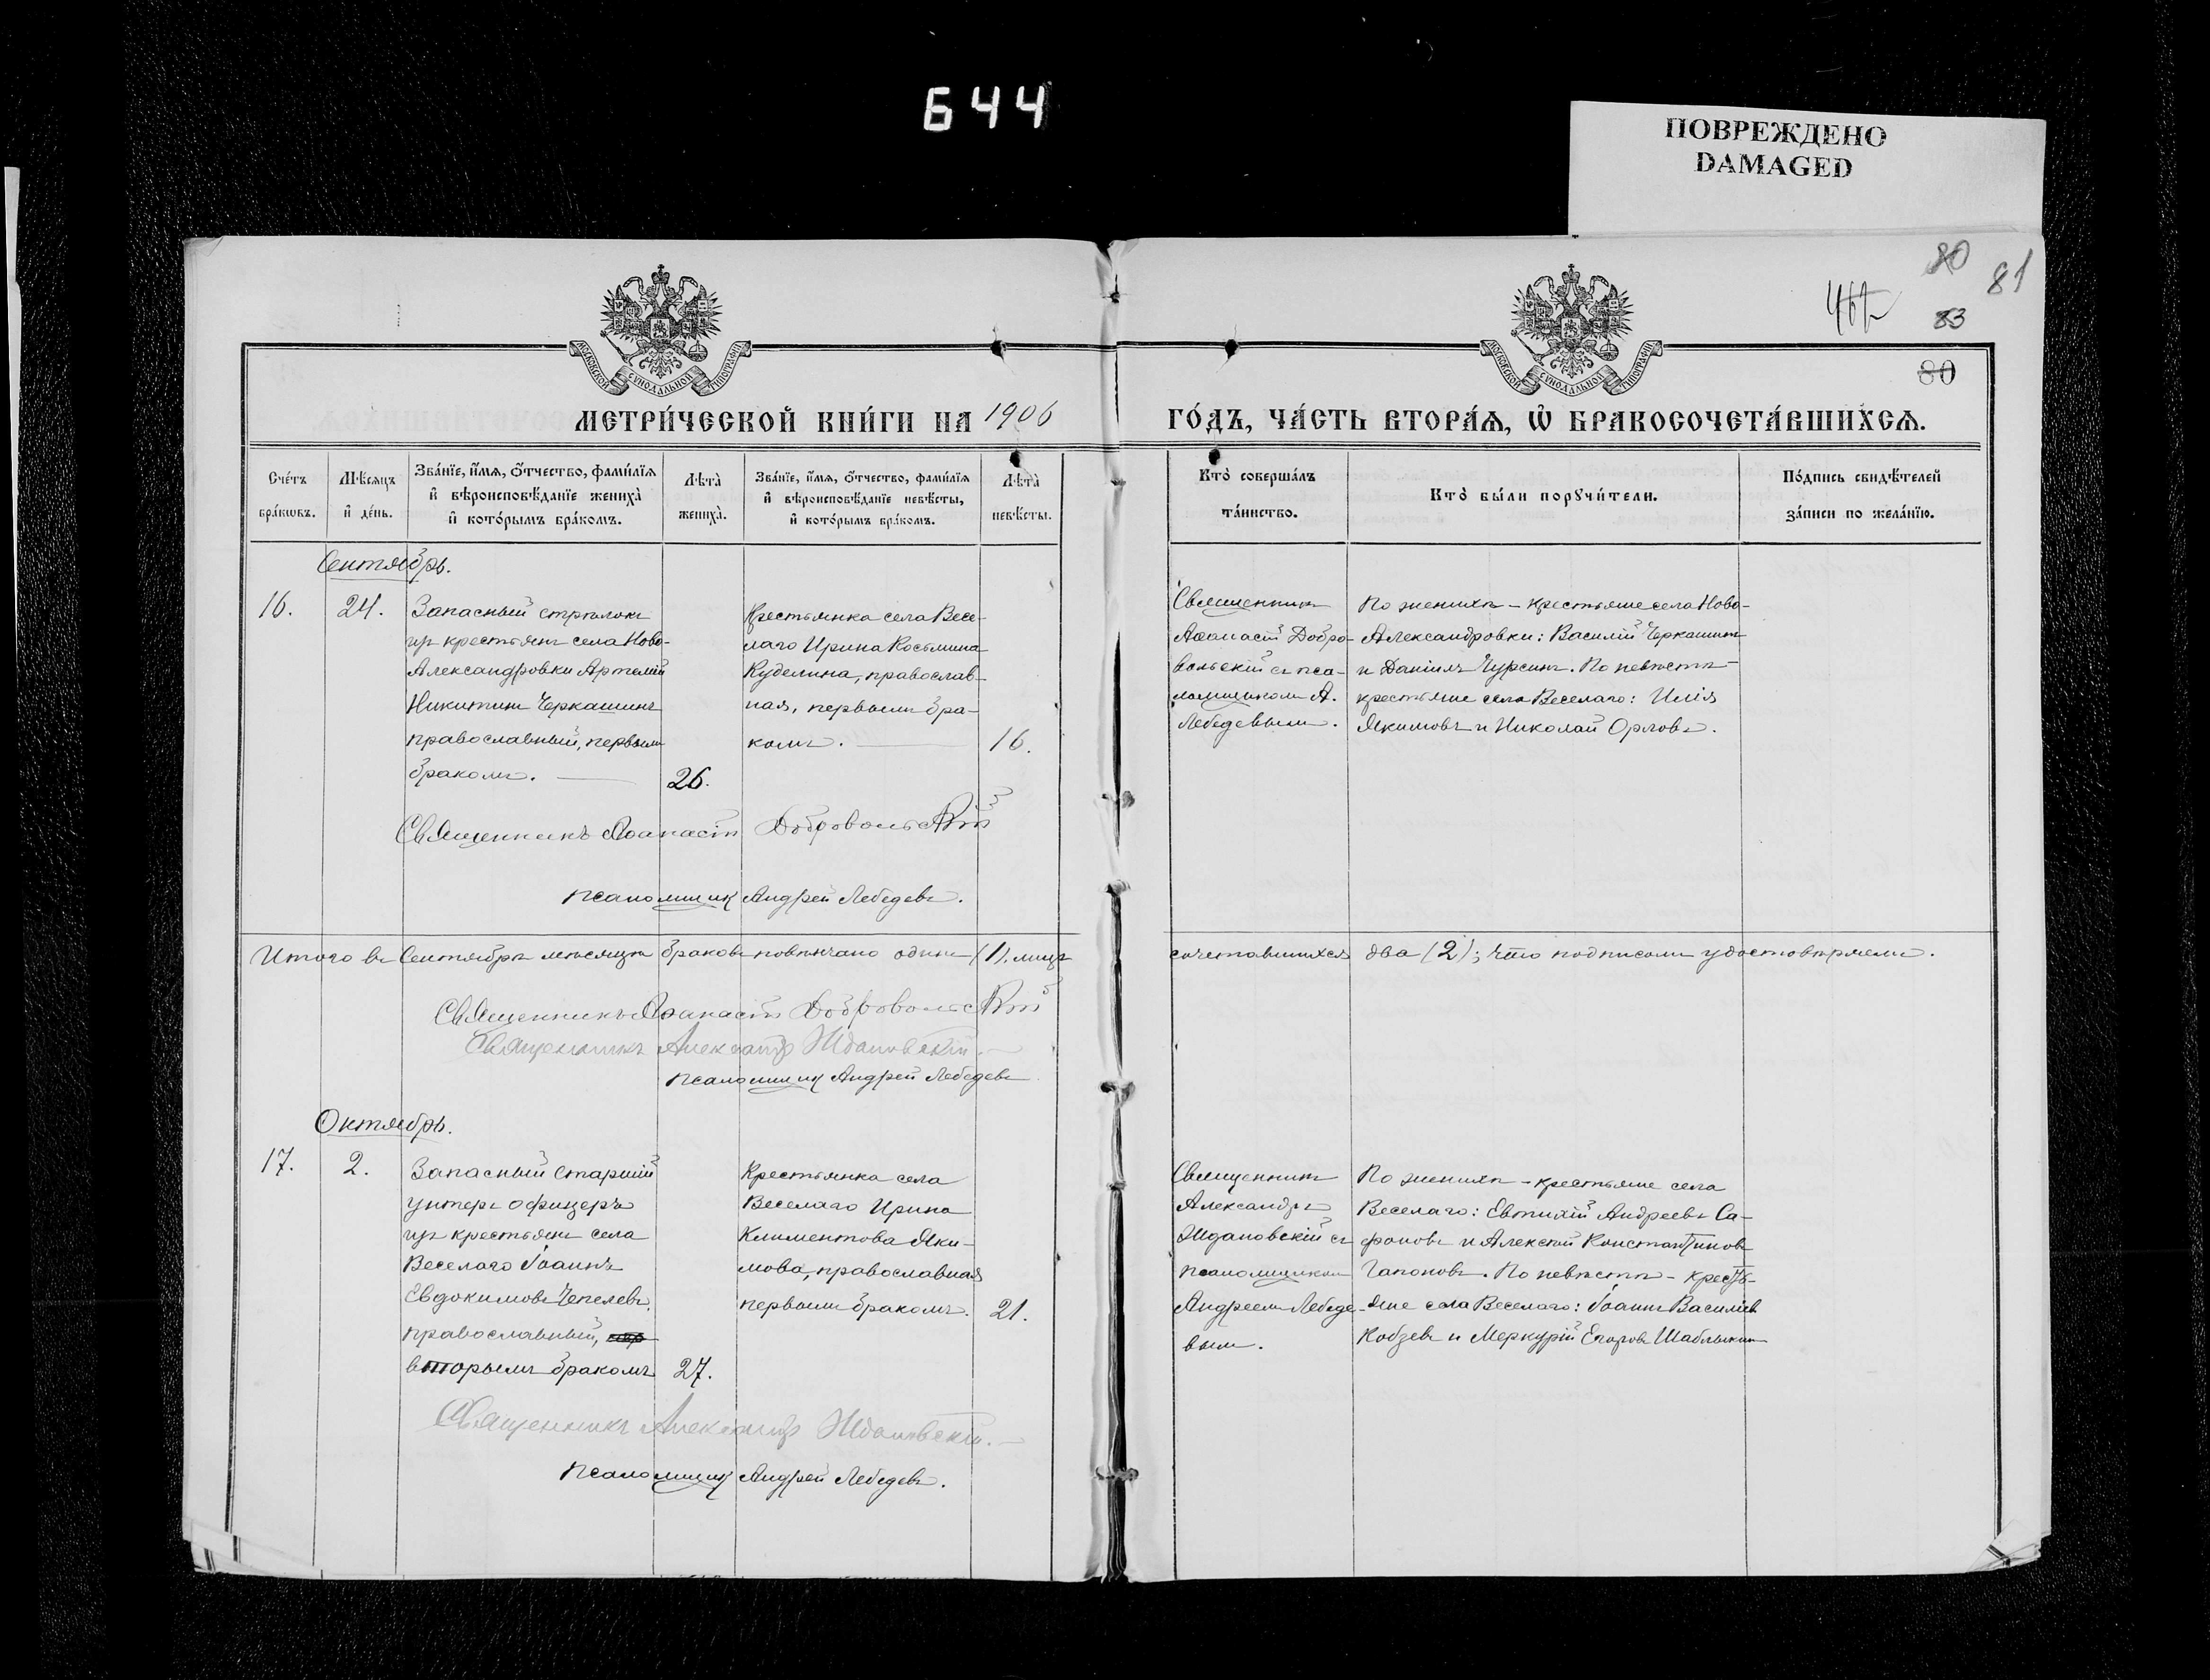 644
ПОВРЕЖДЕНО
DAMAGED
80
81
83
80
МОСКОВСКОЙ СѴНОДАЛЬНОЙ ТИПОГРАФІИ
МОСКОВСКОЙ СѴНОДАЛЬНОЙ ТИПОГРАФІИ
МЕТРИ́ЧЕСКОЙ КНИ́ГИ НА 1906
ГО́ДЪ, ЧА́СТЬ ВТОРА́Ѧ, Ѡ БРАКОСОЧЕТА́ВШИХСѦ.
Сче́тъ
бра́кѡвъ.
Мѣ́сяцъ
и де́нь.
Зва́нїе, и́мѧ, о́тчество, фами́лїѧ
и вѣроисповѣ́данїе жениха̀
и кото́рымъ бра́комъ.
Лѣта̀
жениха̀.
Зва́нїе, и́мѧ, о́тчество, фами́лїѧ
и вѣроисповѣ́данїе невѣ́сты,
и кото́рымъ бра́комъ.
Лѣта̀
невѣ́сты.
Кто̀ соверша́лъ
та́инство.
Кто̀ бы́ли порꙋчи́тели.
По́дпись свидѣ́телей
за́писи по жела́нїю.
Сентябрь.
16.
24.
Запасный стрѣлокъ
изъ крестьянъ села Ново-
Александровки Артемій
Никитинъ Черкашинъ
православный, первымъ
бракомъ.
26.
Крестьянка села Весе-
лаго Ирина Косьмина
Куделина, православ-
ная, первымъ бра-
комъ.
16.
Священникъ
Аѳанасій Добро-
вольскій съ пса-
ломщикомъ А.
Лебедевымъ.
По женихѣ - крестьяне села Ново-
Александровки: Василій Черкашинъ
и Даніилъ Чурсинъ. По невѣстѣ -
крестьяне села Веселаго: Илія
Якимовъ и Николай Орловъ.
Священникъ Аѳанасій Добровольскій
Псаломщикъ Андрей Лебедевъ.
Итого въ Сентябрѣ мѣсяцѣ браковъ повѣнчано одинъ (1), лицъ
сочетавшихся два (2); что подписомъ удостовѣряемъ.
Священникъ Аѳанасій Добровольскій
Священникъ Александръ Ждановскій.
Псаломщикъ Андрей Лебедевъ
Октябрь.
17.
2.
Запасный старшій
унтеръ офицеръ
изъ крестьянъ села
Веселаго Іоаннъ
Евдокимовъ Чепелевъ,
православный,
вторымъ бракомъ
27.
Крестьянка села
Веселаго Ирина
Климентова Яки-
мова, православная
первымъ бракомъ.
21.
Священникъ
Александръ
Ждановскій съ
псаломщикомъ
Андреемъ Лебеде-
вымъ.
По женихѣ - крестьяне села
Веселаго: Евтихій Андреевъ Са-
фоновъ и Алексѣй Константиновъ
Гапоновъ. По невѣстѣ - кресть-
яне села Веселаго: Іоаннъ Василіевъ
Кобзевъ и Меркурій Егоровъ Шаблыкинъ
Священникъ Александръ Ждановскій.
Псаломщикъ Андрей Лебедевъ.